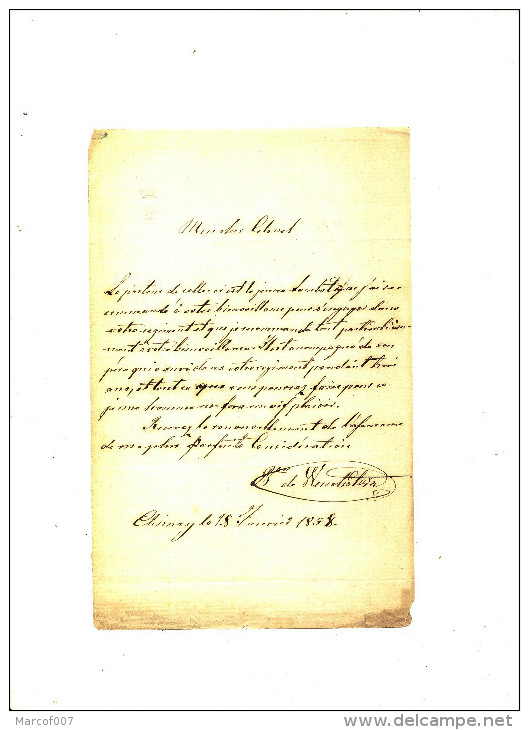 Mon cher Colonel
Le porteur de celle ci est le jeune que j'ai re
commandé à votre bienveillance pour s'engager dans
votre régiment et que je recommande tout particulière
ment à votre bienveillance. Il est accompagné de son
père qui a servi dans votre régiment pendant trois
ans, et tout ce que vous pourrez faire pour ce
jeune homme me fera un vif plaisir.
Recevez le renouvellement de l'assurance
de ma plus parfaite Considération
Bon de
Chimay le 18 Janvier 1858.
Marcof007
www.delcampe.net